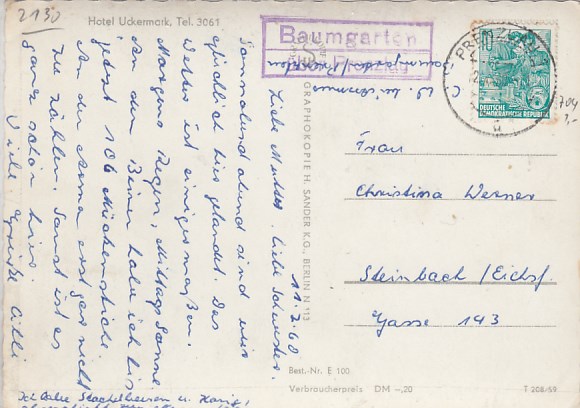 2130
Hotel Uckermark, Tel. 3061
Baumgarten
PRENZLAU
10
DEUTSCHE
DEMOKRATISCHE REPUBLIK
704
3,-
GRAPHOKOPIE H. SANDER K.G., BERLIN N 113
11.7.60
Liebe Mutti, liebe Schwester.
Sonnabend abend sind wir
glücklich hier gelandet. Das
Wetter ist einigermaßen.
Morgens Regen, Mittags Sonne
An den Beinen habe ich bis
jetzt 106 Mückenstiche.
An den Armen erst gar nicht
zu zählen. Sonst ist es
ganz schön hier.
Viele Grüße
Ich habe Stachelbeeren u. Honig,
Frau
Christina Werner
Steinbach/Eichsf.
Gasse 143
Best.-Nr. E 100
Verbraucherpreis DM -,20
T 208/59